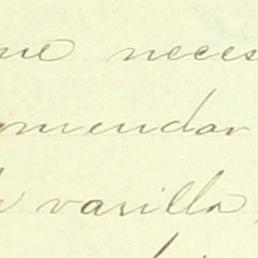 ue neces
omendar
varilla,